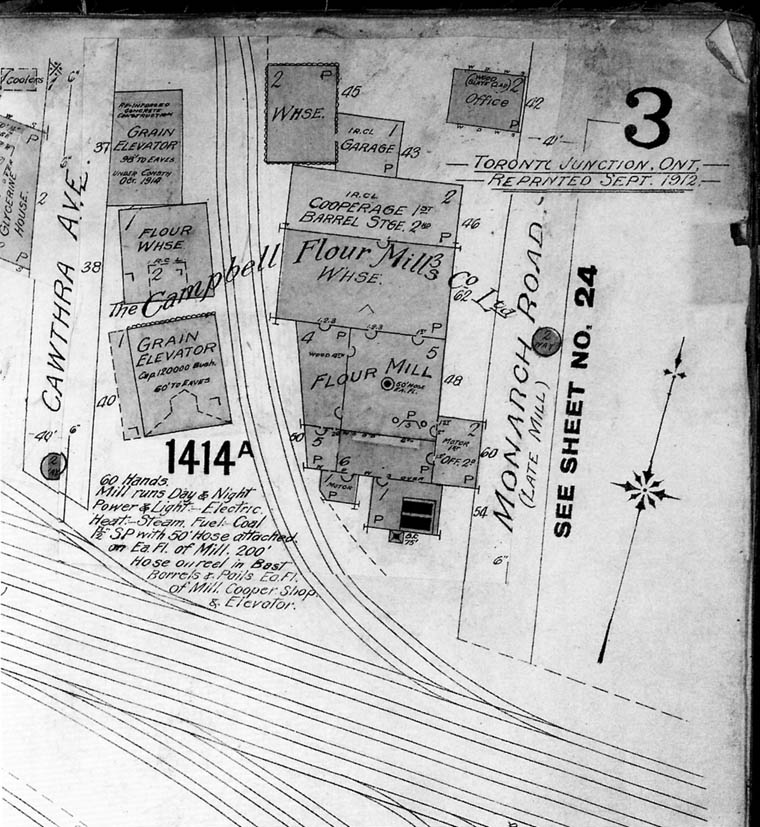 Coolers
GLYCERINE
HOUSE.
2
CAWTHRA AVE.
6"
6"
40'
6"
37
38
40
REINFORCED
CONCRETE
CONSTRUCTION
GRAIN
ELEVATOR
98' TO EAVES
UNDER CONSTN
OCT. 1914
1
FLOUR
WHSE
2
1
GRAIN
ELEVATOR
Cap. 120000 Bush.
60' TO EAVES
1414A
60 Hands.
Mill runs Day & Night
Power & Light:- Electric.
Heat:- Steam. Fuel:- Coal
1½" SP with 50' Hose attached
on Ea. Fl. of Mill. 200'
Hose on reel in Bast
Barrels & Pails Ea. Fl.
of Mill. Cooper Shop.
& Elevator.
2 P
WHSE.
45
IR.CL 1
GARAGE
P
43
2
Office
P
42
IR.CL 2
COOPERAGE 1ST
BARREL STGE. 2ND
P
46
The Campbell Flour Mills Co Ltd
WHSE.
3
62
P
4
5
FLOUR MILL
50' HOSE
EA. FL.
48
P
50
5
6
P
2
MOTOR
1ST
OFF. 2D
60
P
1
MOTOR
P
1
P
54
75'
3
TORONTO JUNCTION, ONT.
REPRINTED SEPT. 1912.
4'
MONARCH ROAD
(LATE MILL)
6"
2
WAY
SEE SHEET NO. 24